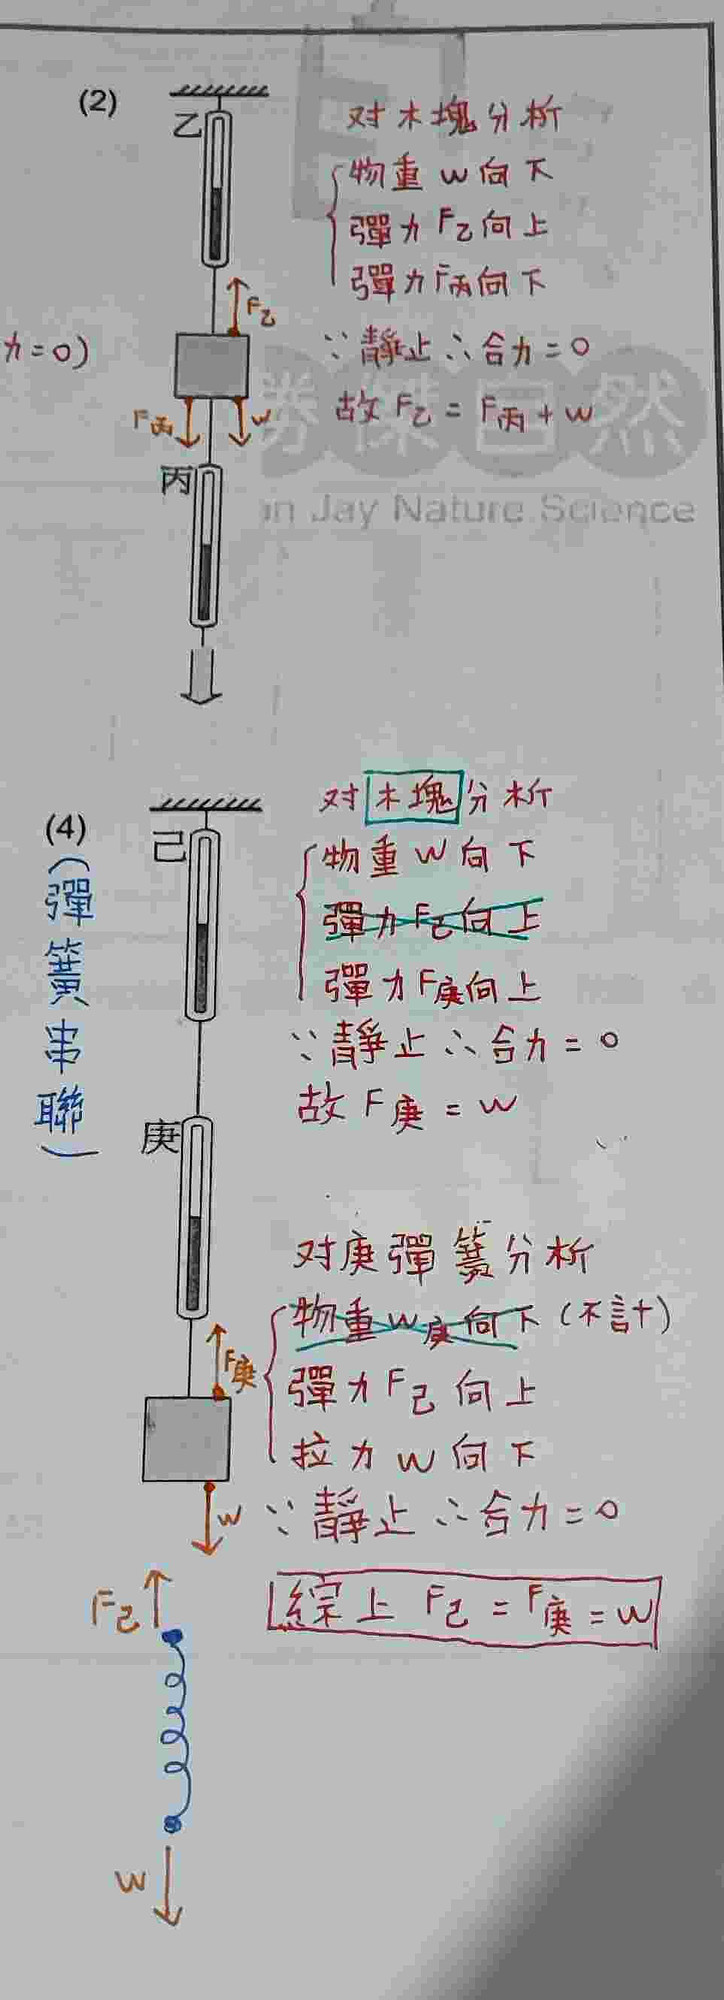 (2)
乙
对木塊分析
物重W向下
彈力F乙向上
彈力F丙向下
F乙
力=0)
∵靜止∴合力=0
F丙
W
故F乙=F丙+W
勝傑自然
in Jay Nature Science
丙
(4)
(彈簧串聯)
己
对木塊分析
物重W向下
彈力F己向上
彈力F庚向上
∵靜止∴合力=0
故F庚=W
庚
对庚彈簧分析
物重W庚向下(不計)
F庚
彈力F己向上
拉力W向下
W
∵靜止∴合力=0
F己
綜上 F己=F庚=W
W